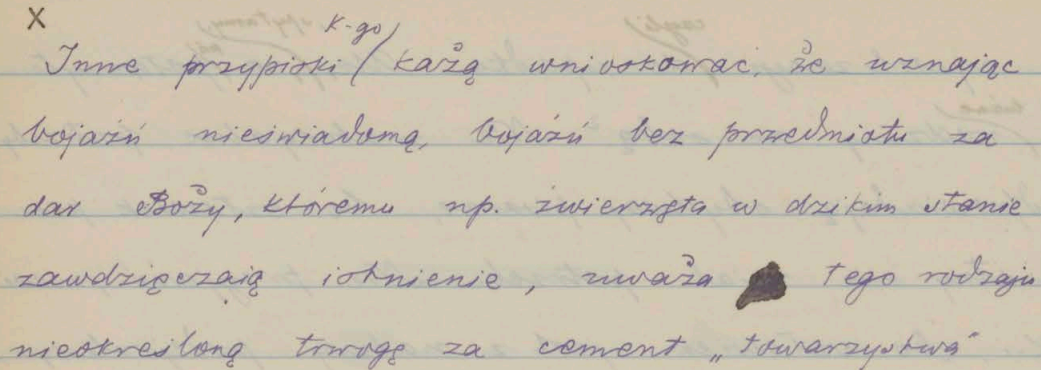 X
K-go
Inne przypiski / każą wnioskować, że uznając
bojaźń nieświadomą, bojaźń bez przedmiotu za
dar Boży, któremu np. zwierzęta w dzikim stanie
zawdzięczają istnienie, uważa tego rodzaju
nieokreśloną trwogę za cement „towarzystwa"